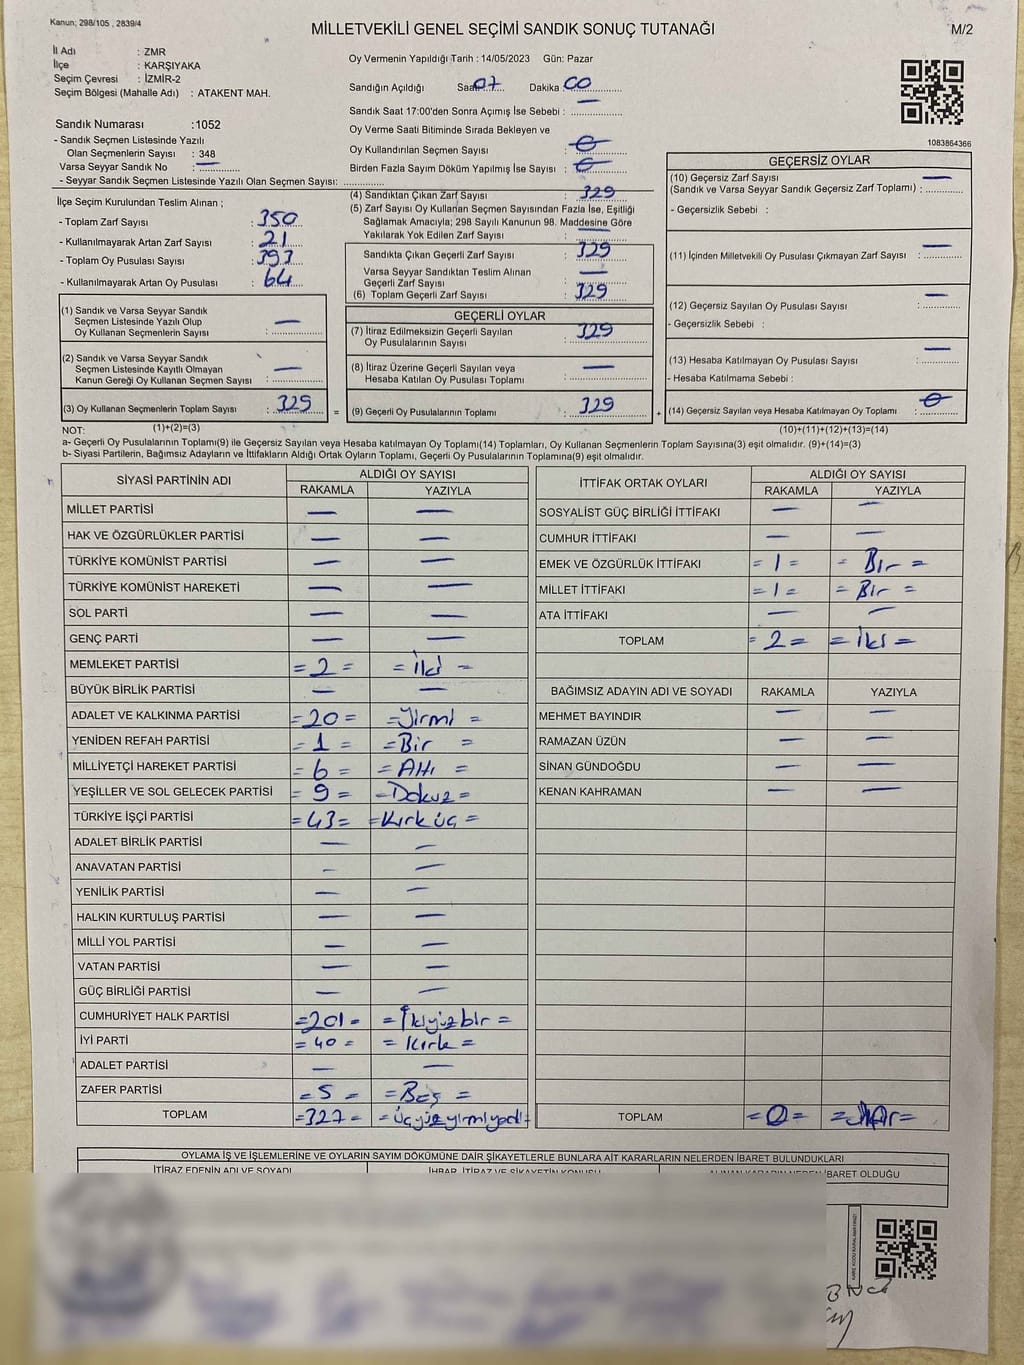 Kanun; 298/105 , 2839/4
MİLLETVEKİLİ GENEL SEÇİMİ SANDIK SONUÇ TUTANAĞI
M/2
İl Adı : ZMR
İlçe : KARŞIYAKA
Seçim Çevresi : İZMİR-2
Seçim Bölgesi (Mahalle Adı) : ATAKENT MAH.
Oy Vermenin Yapıldığı Tarih : 14/05/2023 Gün: Pazar
Sandığın Açıldığı Saat 07 Dakika 00
Sandık Saat 17:00'den Sonra Açımış İse Sebebi : —
Sandık Numarası :1052
- Sandık Seçmen Listesinde Yazılı
Olan Seçmenlerin Sayısı : 348
Varsa Seyyar Sandık No : —
- Seyyar Sandık Seçmen Listesinde Yazılı Olan Seçmen Sayısı:
Oy Verme Saati Bitiminde Sırada Bekleyen ve
Oy Kullandırılan Seçmen Sayısı : 0
Birden Fazla Sayım Döküm Yapılmış İse Sayısı : 0
1083864366
İlçe Seçim Kurulundan Teslim Alınan ;
- Toplam Zarf Sayısı : 350
- Kullanılmayarak Artan Zarf Sayısı : 21
- Toplam Oy Pusulası Sayısı : 393
- Kullanılmayarak Artan Oy Pusulası : 64
(1) Sandık ve Varsa Seyyar Sandık
Seçmen Listesinde Yazılı Olup
Oy Kullanan Seçmenlerin Sayısı : —
(2) Sandık ve Varsa Seyyar Sandık
Seçmen Listesinde Kayıtlı Olmayan
Kanun Gereği Oy Kullanan Seçmen Sayısı : —
(3) Oy Kullanan Seçmenlerin Toplam Sayısı : 329
(1)+(2)=(3)
(4) Sandıktan Çıkan Zarf Sayısı : 329
(5) Zarf Sayısı Oy Kullanan Seçmen Sayısından Fazla İse, Eşitliği
Sağlamak Amacıyla; 298 Sayılı Kanunun 98. Maddesine Göre
Yakılarak Yok Edilen Zarf Sayısı : —
Sandıkta Çıkan Geçerli Zarf Sayısı : 329
Varsa Seyyar Sandıktan Teslim Alınan
Geçerli Zarf Sayısı : —
(6) Toplam Geçerli Zarf Sayısı : 329
GEÇERLİ OYLAR
(7) İtiraz Edilmeksizin Geçerli Sayılan
Oy Pusulalarının Sayısı : 329
(8) İtiraz Üzerine Geçerli Sayılan veya
Hesaba Katılan Oy Pusulası Toplamı : —
= (9) Geçerli Oy Pusulalarının Toplamı : 329
GEÇERSİZ OYLAR
(10) Geçersiz Zarf Sayısı —
(Sandık ve Varsa Seyyar Sandık Geçersiz Zarf Toplamı) :
- Geçersizlik Sebebi :
(11) İçinden Milletvekili Oy Pusulası Çıkmayan Zarf Sayısı : —
(12) Geçersiz Sayılan Oy Pusulası Sayısı : —
- Geçersizlik Sebebi :
(13) Hesaba Katılmayan Oy Pusulası Sayısı : —
- Hesaba Katılmama Sebebi :
+ (14) Geçersiz Sayılan veya Hesaba Katılmayan Oy Toplamı : 0
(10)+(11)+(12)+(13)=(14)
NOT:
a- Geçerli Oy Pusulalarının Toplamı(9) ile Geçersiz Sayılan veya Hesaba katılmayan Oy Toplamı(14) Toplamları, Oy Kullanan Seçmenlerin Toplam Sayısına(3) eşit olmalıdır. (9)+(14)=(3)
b- Siyasi Partilerin, Bağımsız Adayların ve İttifakların Aldığı Ortak Oyların Toplamı, Geçerli Oy Pusulalarının Toplamına(9) eşit olmalıdır.
SİYASİ PARTİNİN ADI ALDIĞI OY SAYISI
RAKAMLA YAZIYLA
MİLLET PARTİSİ — —
HAK VE ÖZGÜRLÜKLER PARTİSİ — —
TÜRKİYE KOMÜNİST PARTİSİ — —
TÜRKİYE KOMÜNİST HAREKETİ — —
SOL PARTİ — —
GENÇ PARTİ — —
MEMLEKET PARTİSİ =2= =İki=
BÜYÜK BİRLİK PARTİSİ — —
ADALET VE KALKINMA PARTİSİ =20= =Yirmi=
YENİDEN REFAH PARTİSİ =1= =Bir=
MİLLİYETÇİ HAREKET PARTİSİ =6= =Altı=
YEŞİLLER VE SOL GELECEK PARTİSİ =9= =Dokuz=
TÜRKİYE İŞÇİ PARTİSİ =43= =Kırküç=
ADALET BİRLİK PARTİSİ — —
ANAVATAN PARTİSİ — —
YENİLİK PARTİSİ — —
HALKIN KURTULUŞ PARTİSİ — —
MİLLİ YOL PARTİSİ — —
VATAN PARTİSİ — —
GÜÇ BİRLİĞİ PARTİSİ — —
CUMHURİYET HALK PARTİSİ =201= =İkiyüzbir=
İYİ PARTİ =40= =Kırk=
ADALET PARTİSİ — —
ZAFER PARTİSİ =5= =Beş=
TOPLAM =327= =üçyüzyirmiyedi=
İTTİFAK ORTAK OYLARI ALDIĞI OY SAYISI
RAKAMLA YAZIYLA
SOSYALİST GÜÇ BİRLİĞİ İTTİFAKI — —
CUMHUR İTTİFAKI — —
EMEK VE ÖZGÜRLÜK İTTİFAKI =1= =Bir=
MİLLET İTTİFAKI =1= =Bir=
ATA İTTİFAKI — —
TOPLAM =2= =İki=
BAĞIMSIZ ADAYIN ADI VE SOYADI RAKAMLA YAZIYLA
MEHMET BAYINDIR — —
RAMAZAN ÜZÜN — —
SİNAN GÜNDOĞDU — —
KENAN KAHRAMAN — —
TOPLAM =0=
OYLAMA İŞ VE İŞLEMLERİNE VE OYLARIN SAYIM DÖKÜMÜNE DAİR ŞİKAYETLERLE BUNLARA AİT KARARLARIN NELERDEN İBARET BULUNDUKLARI
İTİRAZ EDENİN ADI VE SOYADI İHBAR, İTİRAZ VE ŞİKAYETİN KONUSU ALINAN KARARIN NEDEN İBARET OLDUĞU